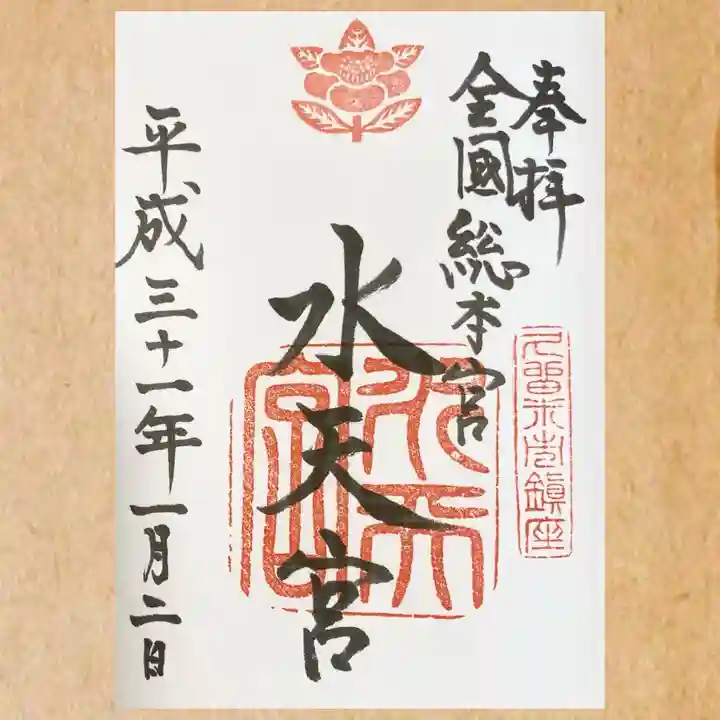 奉拝
全國総本宮
久留米市鎮座
水天宮
水天宮
平成三十一年一月二日